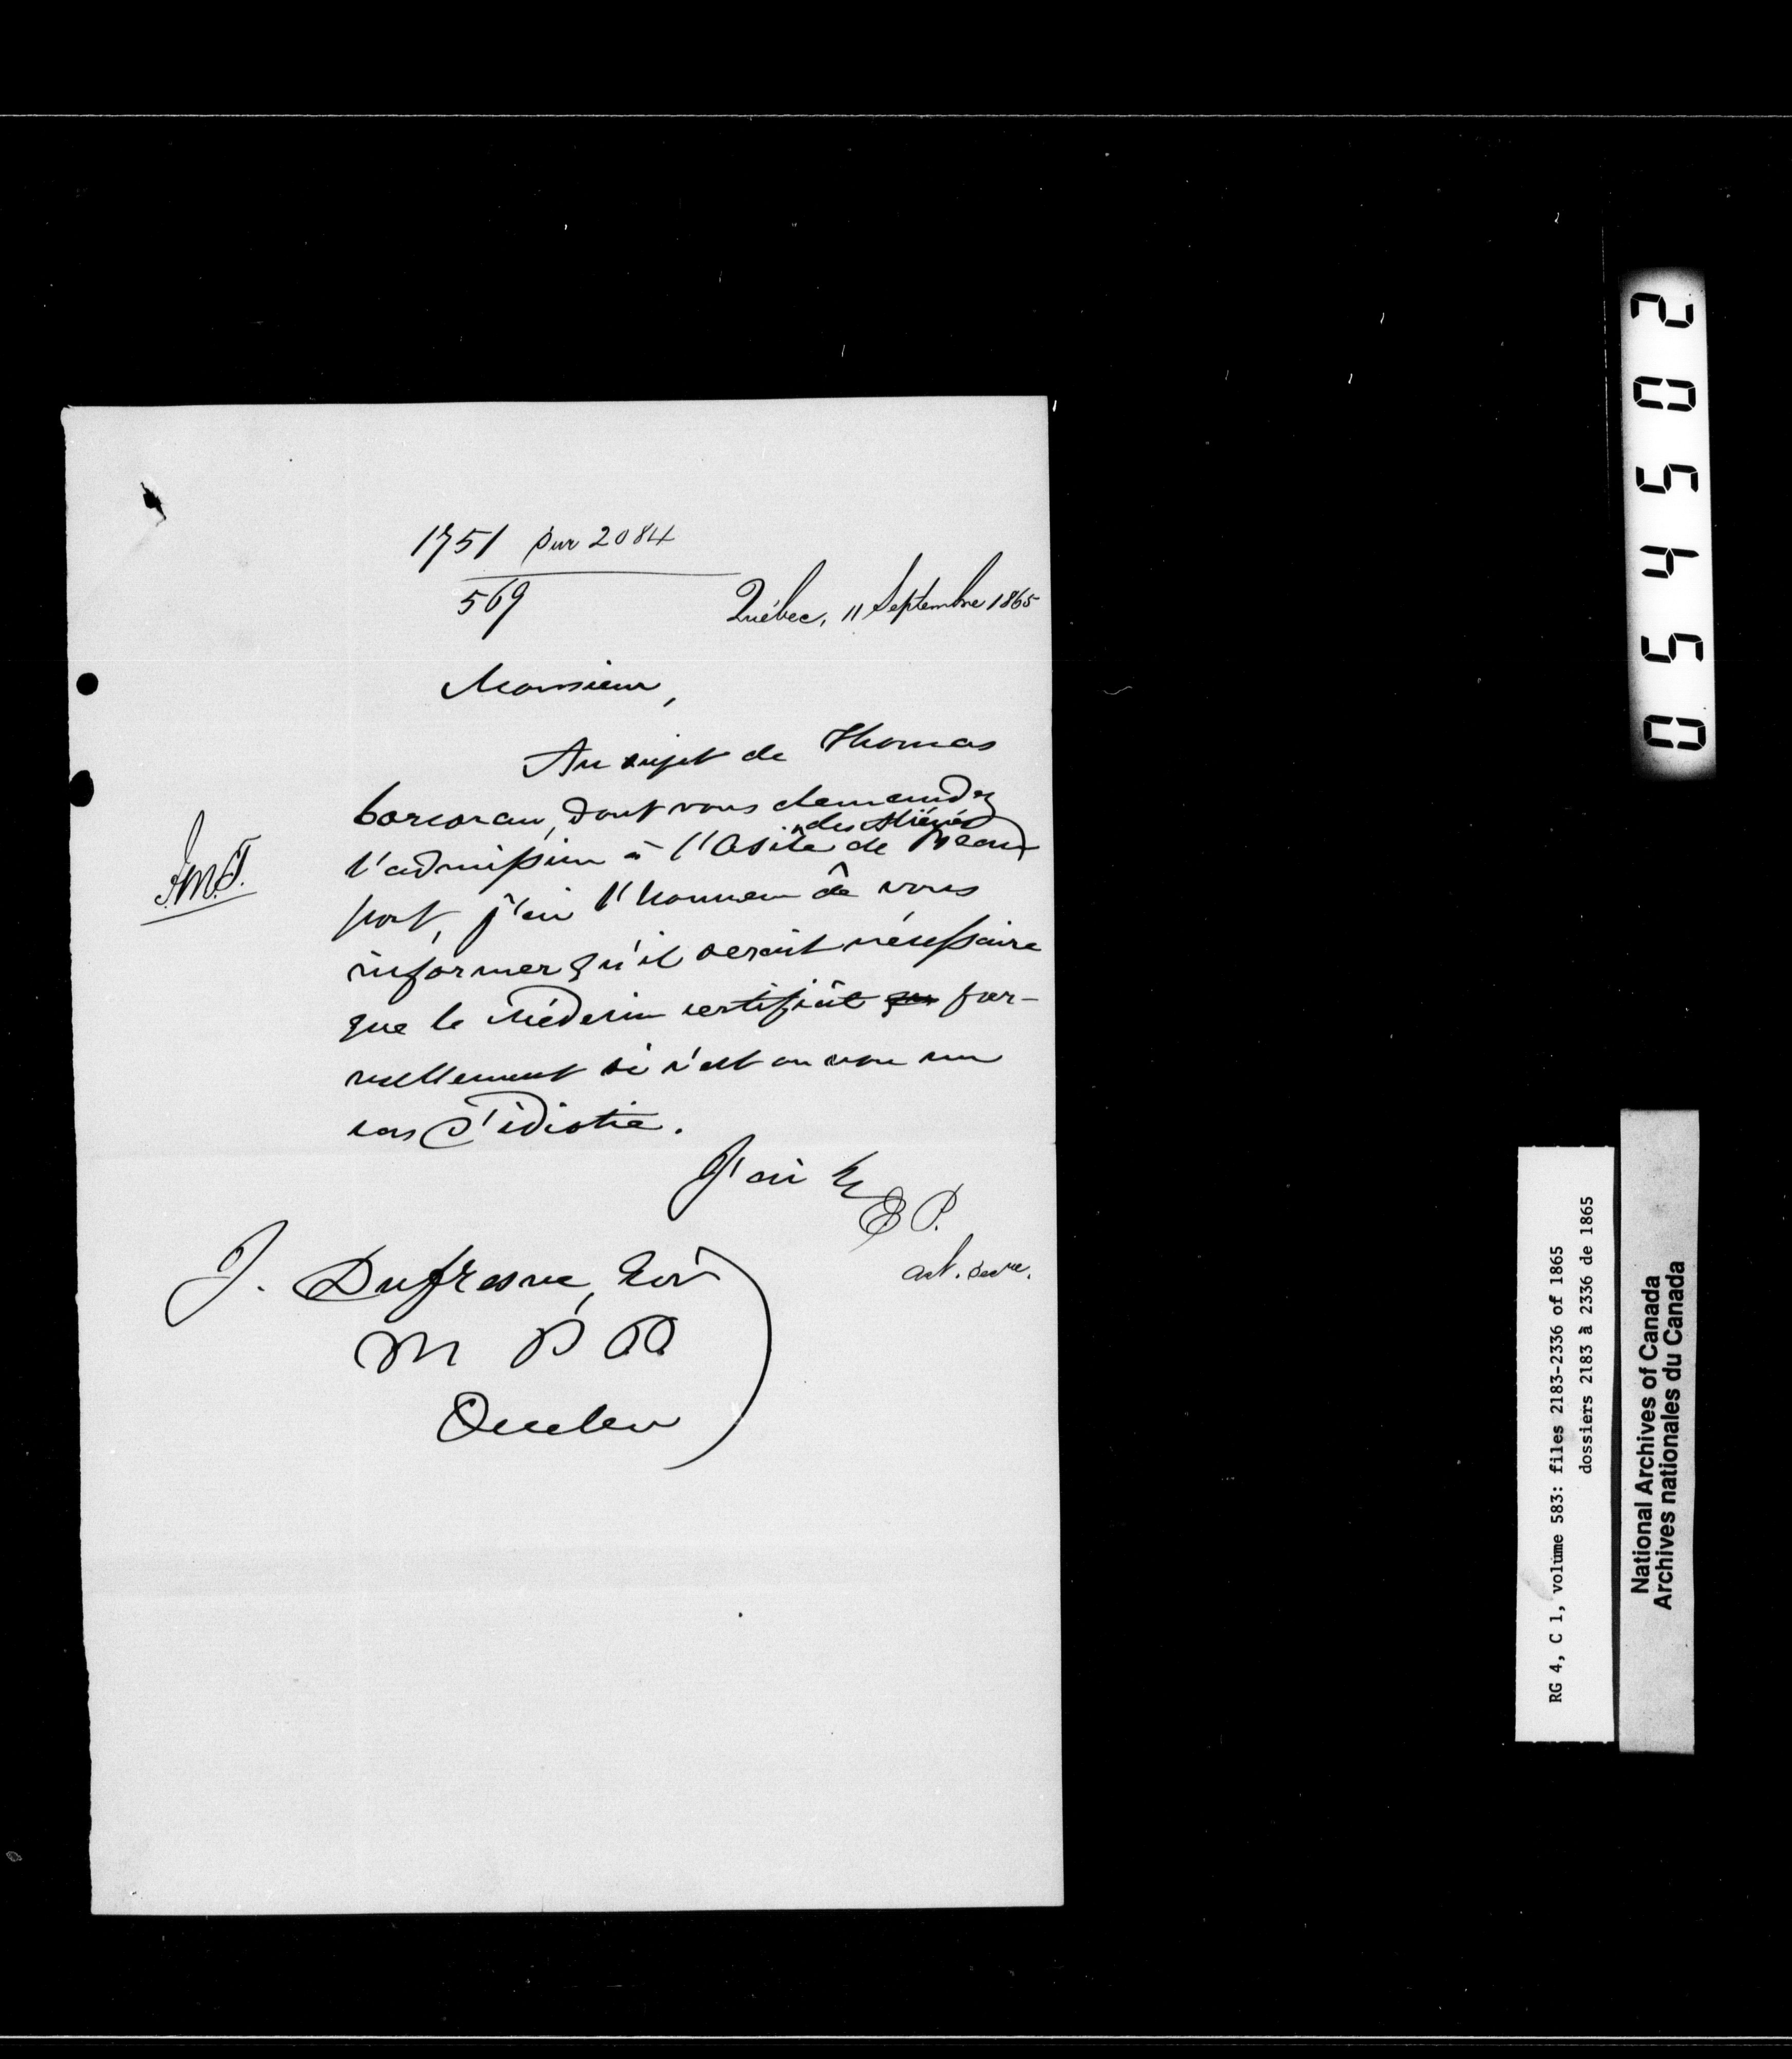 1751 sur 2084
569
Québec, 11 Septembre 1865
Monsieur,
Au sujet de Thomas
Corcoran, dont vous demandez
des Aliénés
l'admission à l'Asile de Beau
port, j'ai l'honneur de vous
informer qu'il serait nécessaire
que le Médecin certifiât for-
mellement si c'est ou non un
cas d'idiotie.
J'ai
E P.
ast. secre.
J. Dufresne, Ecr
M P P.
Quebec
205450
RG 4, C 1, volume 583: files 2183-2336 of 1865
dossiers 2183 à 2336 de 1865
National Archives of Canada
Archives nationales du Canada